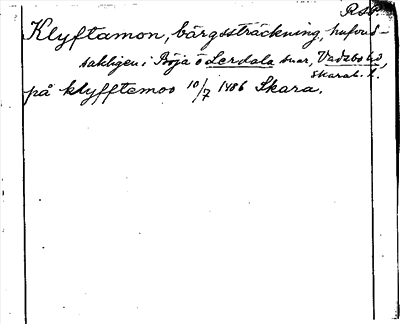 Klyftamon, bärgssträckning, hufvud-
sakligen i Böja o Lerdala snar, Vadsbo hd,
Skarab. l.
på klyfftemoo 10/7 1486 Skara.